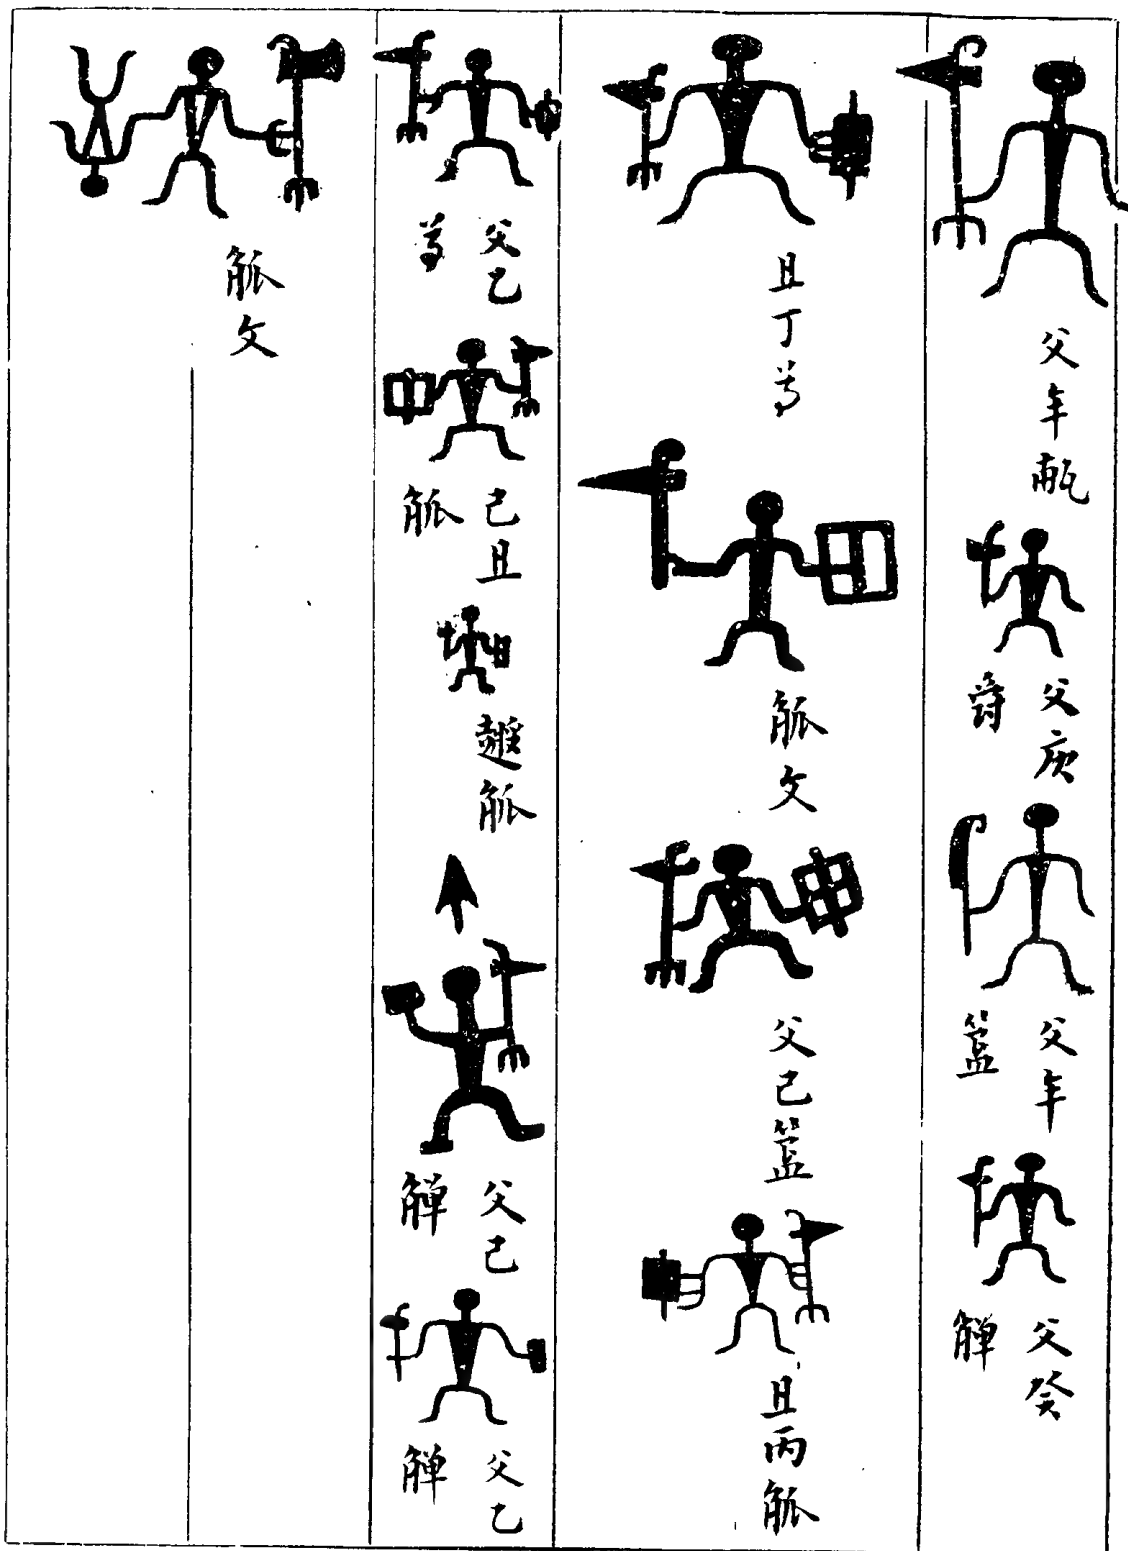 父辛甗
父庚
爵
父辛
簋
父癸
觶
且丁尊
觚文
父己簋
且丙觚
父乙
尊
己且
觚
觚
父己
觶
父乙
觶
觚文